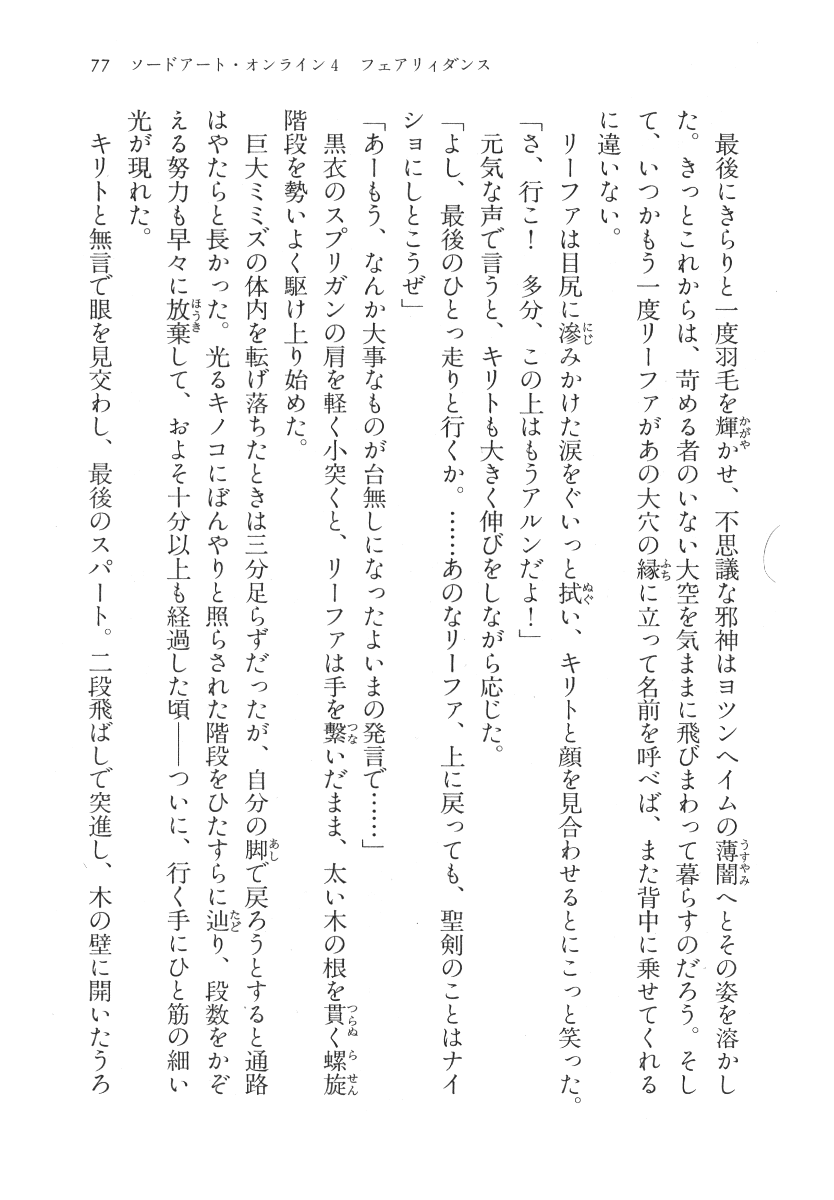 77　ソードアート・オンライン4　フェアリィダンス
　最後にきらりと一度羽毛を輝かせ、不思議な邪神はヨツンヘイムの薄闇へとその姿を溶かし
た。きっとこれからは、苛める者のいない大空を気ままに飛びまわって暮らすのだろう。そし
て、いつかもう一度リーファがあの大穴の縁に立って名前を呼べば、また背中に乗せてくれる
に違いない。
　リーファは目尻に滲みかけた涙をぐいっと拭い、キリトと顔を見合わせるとにこっと笑った。
「さ、行こ！　多分、この上はもうアルンだよ！」
　元気な声で言うと、キリトも大きく伸びをしながら応じた。
「よし、最後のひとっ走りと行くか。……あのなリーファ、上に戻っても、聖剣のことはナイ
ショにしとこうぜ」
「あーもう、なんか大事なものが台無しになったよいまの発言で……」
　黒衣のスプリガンの肩を軽く小突くと、リーファは手を繋いだまま、太い木の根を貫く螺旋
階段を勢いよく駆け上り始めた。
　巨大ミミズの体内を転げ落ちたときは三分足らずだったが、自分の脚で戻ろうとすると通路
はやたらと長かった。光るキノコにぼんやりと照らされた階段をひたすらに辿り、段数をかぞ
える努力も早々に放棄して、およそ十分以上も経過した頃――ついに、行く手にひと筋の細い
光が現れた。
　キリトと無言で眼を見交わし、最後のスパート。二段飛ばしで突進し、木の壁に開いたうろ